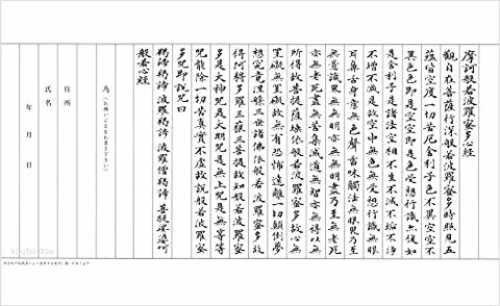 摩訶般若波羅蜜多心経
觀自在菩薩行深般若波羅蜜多時照見五
蘊皆空度一切苦厄舎利子色不異空空不
異色色即是空空即是色受想行識亦復如
是舎利子是諸法空相不生不滅不垢不浄
不增不減是故空中無色無受想行識無眼
耳鼻舌身意無色聲香味觸法無眼界乃至
無意識界無無明亦無無明盡乃至無老死
亦無老死盡無苦集滅道無智亦無得以無
所得故菩提薩埵依般若波羅蜜多故心無
罣礙無罣礙故無有恐怖遠離一切顛倒夢
想究竟涅槃三世諸佛依般若波羅蜜多故
得阿耨多羅三藐三菩提故知般若波羅蜜
多是大神呪是大明呪是無上呪是無等等
呪能除一切苦真實不虛故説般若波羅蜜
多呪即説呪曰
羯諦羯諦 波羅羯諦 波羅僧羯諦 菩提薩婆訶
般若心経
為
住所
氏名
年 月 日